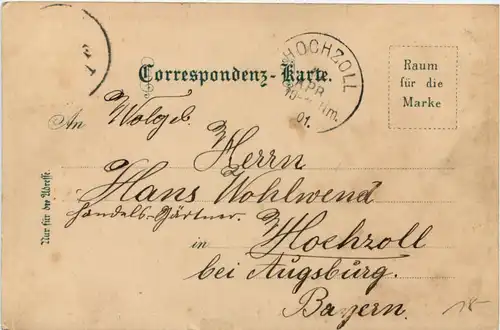 Correspondenz-Karte.
HOCHZOLL
APR
01.
Raum
für die
Marke
An Wolgeb.
Herrn
Hans Wohlwend
Handels-Gärtner.
in Hochzoll
bei Augsburg.
Bayern.
Nur für die Adresse.